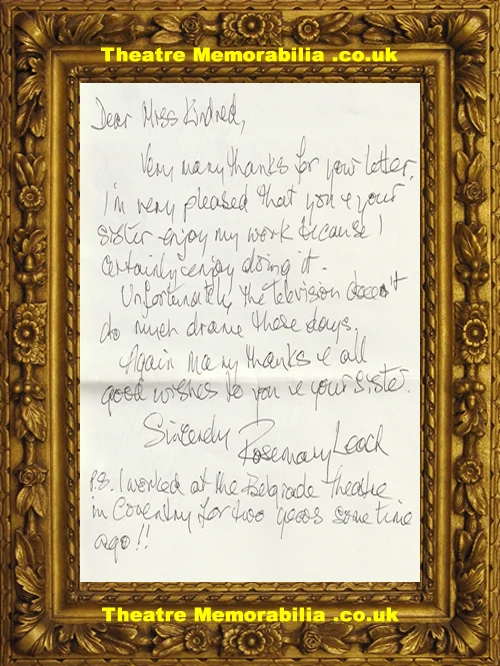 Theatre Memorabilia .co.uk
Dear Miss Kindred,
Very many thanks for your letter.
I'm very pleased that you & your
sister enjoy my work because I
certainly enjoy doing it.
Unfortunately, the television doesn't
do much drama these days.
Again many thanks & all
good wishes to you & your sister.
Sincerely Rosemary Leach
P.S. I worked at the Belgrade Theatre
in Coventry for two years some time
ago!!
Theatre Memorabilia .co.uk